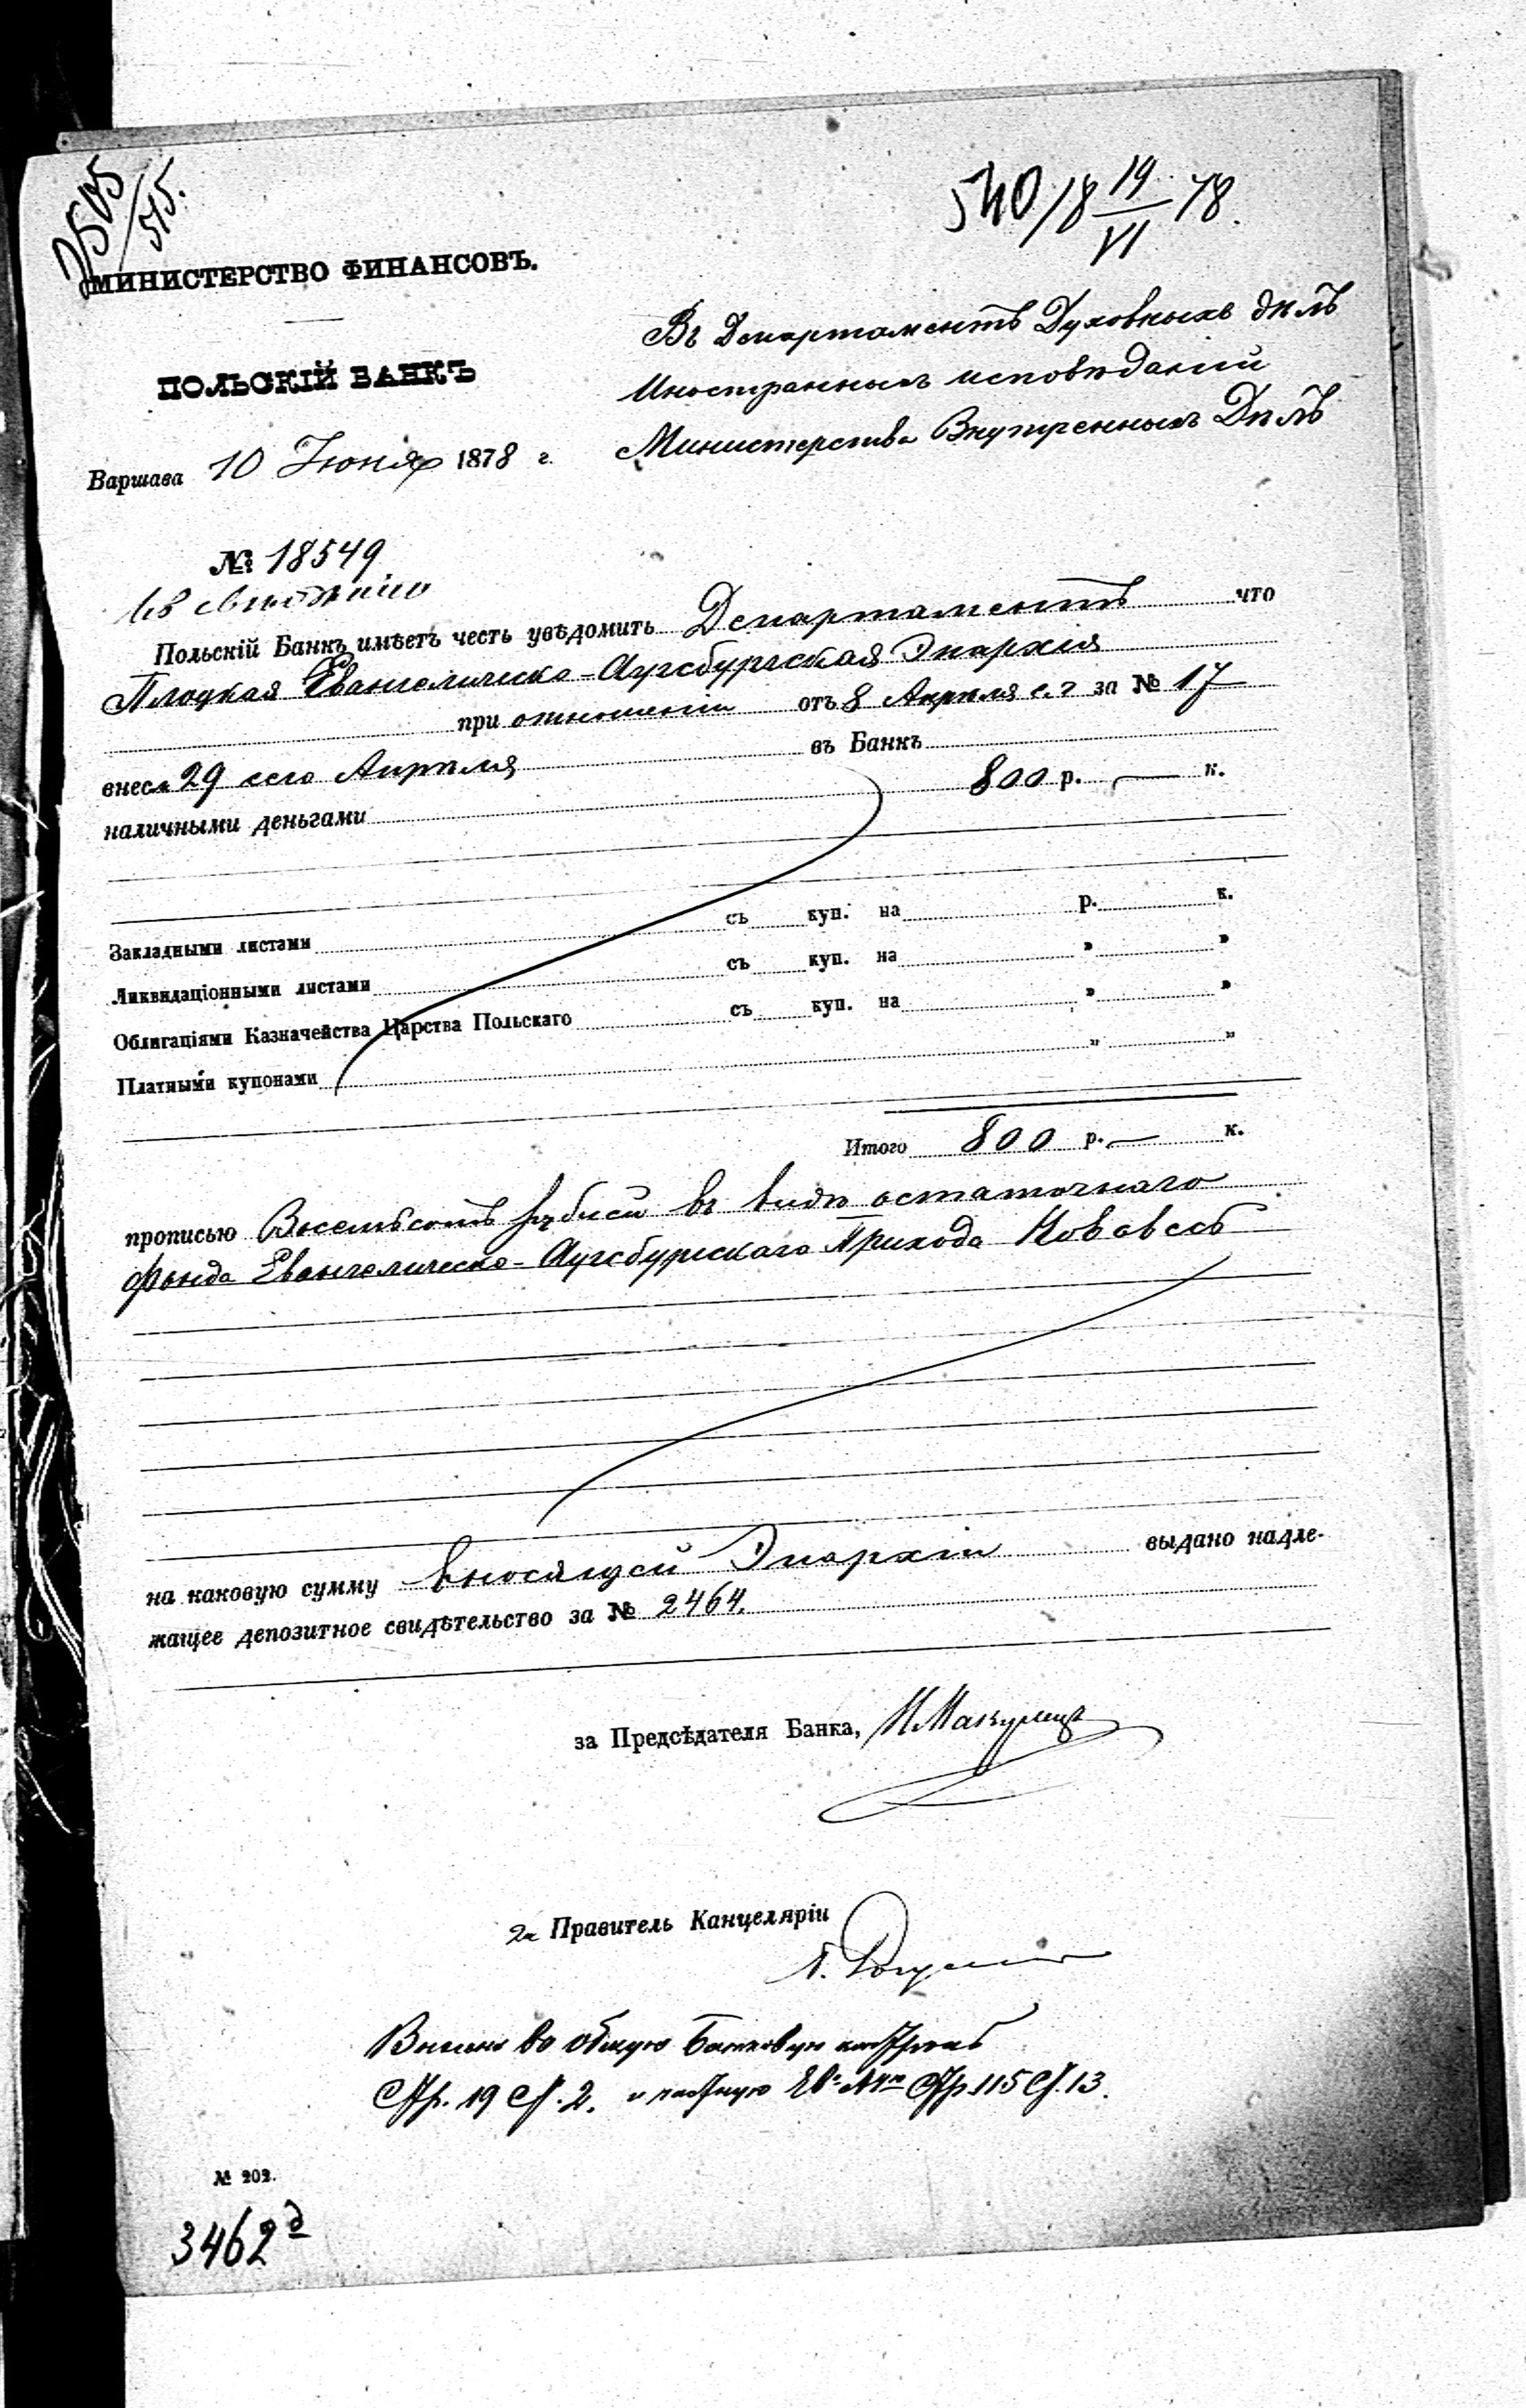 2505/515.
540/18 19/VI 78.
МИНИСТЕРСТВО ФИНАНСОВЪ.
ПОЛЬСКІЙ БАНКЪ
Варшава 10 Іюня 1878 г.
Въ Департаментъ Духовныхъ дѣлъ
Иностранныхъ исповѣданій
Министерства Внутренныхъ Дѣлъ
№ 18549
Къ свѣдѣнію
Польскій Банкъ имѣетъ честь увѣдомить Департаментъ что
Плоцкая Евангелическо-Аугсбургская Эпархія
при отношеніи отъ 8 Апрѣля с. г за № 17
внесла 29 сего Апрѣля въ Банкъ
наличными деньгами 800 р. — к.
Закладными листами съ куп. на р. к.
Ликвидаціонными листами съ куп. на „ „
Облигаціями Казначейства Царства Польскаго съ куп. на „ „
Платными купонами „ „
Итого 800 р. — к.
прописью Восемьсотъ рублей въ видѣ остаточнаго
фонда Евангелическо-Аугсбургскаго Прихода Нововесь
на каковую сумму вносящей Эпархіи выдано надле-
жащее депозитное свидѣтельство за № 2464.
за Предсѣдателя Банка,
за Правитель Канцеляріи
Внесено во общую Банковую контроль
Стр. 19 Ст. 2. и частную Стр 115 Ст. 13.
№ 202.
3462 д